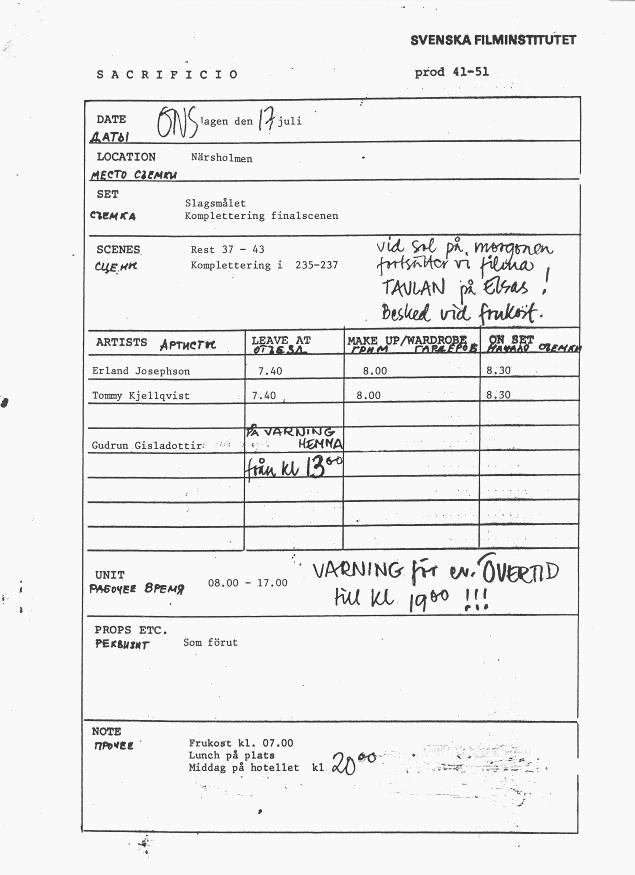 SVENSKA FILMINSTITUTET
SACRIFICIO prod 41-51
DATE ONSdagen den 17 juli
ДАТЫ
LOCATION Närsholmen
МЕСТО СЪЕМКИ
SET
Slagsmålet
СЪЕМКА Komplettering finalscenen
SCENES Rest 37 - 43
СЦЕНЫ Komplettering i 235-237
vid sol på morgonen
fortsätter vi filma
TAVLAN på Elsas!
Besked vid frukost.
ARTISTS АРТИСТЫ LEAVE AT ОТЪЕЗД MAKE UP/WARDROBE ГРИМ ГАРДЕРОБ ON SET НАЧАЛО СЪЕМКИ
Erland Josephson 7.40 8.00 8.30
Tommy Kjellqvist 7.40 8.00 8.30
PÅ VARNING
Gudrun Gisladottir HEMMA
från kl 13⁰⁰
UNIT 08.00 - 17.00
РАБОЧЕЕ ВРЕМЯ
VARNING för ev. ÖVERTID
till kl 19⁰⁰ !!!
PROPS ETC.
РЕКВИЗИТ Som förut
NOTE
ПРОЧЕЕ Frukost kl. 07.00
Lunch på plats
Middag på hotellet kl 20⁰⁰